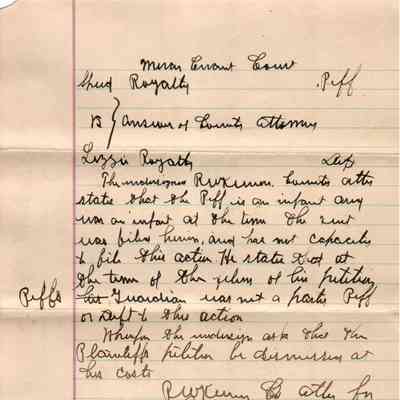 Circuit Court
Shed Royalty Piff
vs } answer of County attorney
Lizzie Royalty Deft
The undersigned County atty
states that the Piff is an infant and
was an infant at the time the suit
was filed herein, and has not capacity
to file this action He states that at
the time of the filing of his petition
Piffs his Guardian was not a partie Piff
or Deft to this action
Wherefore the undersign ask that the
Plaintiffs petition be dismissed at
his costs
Co atty for